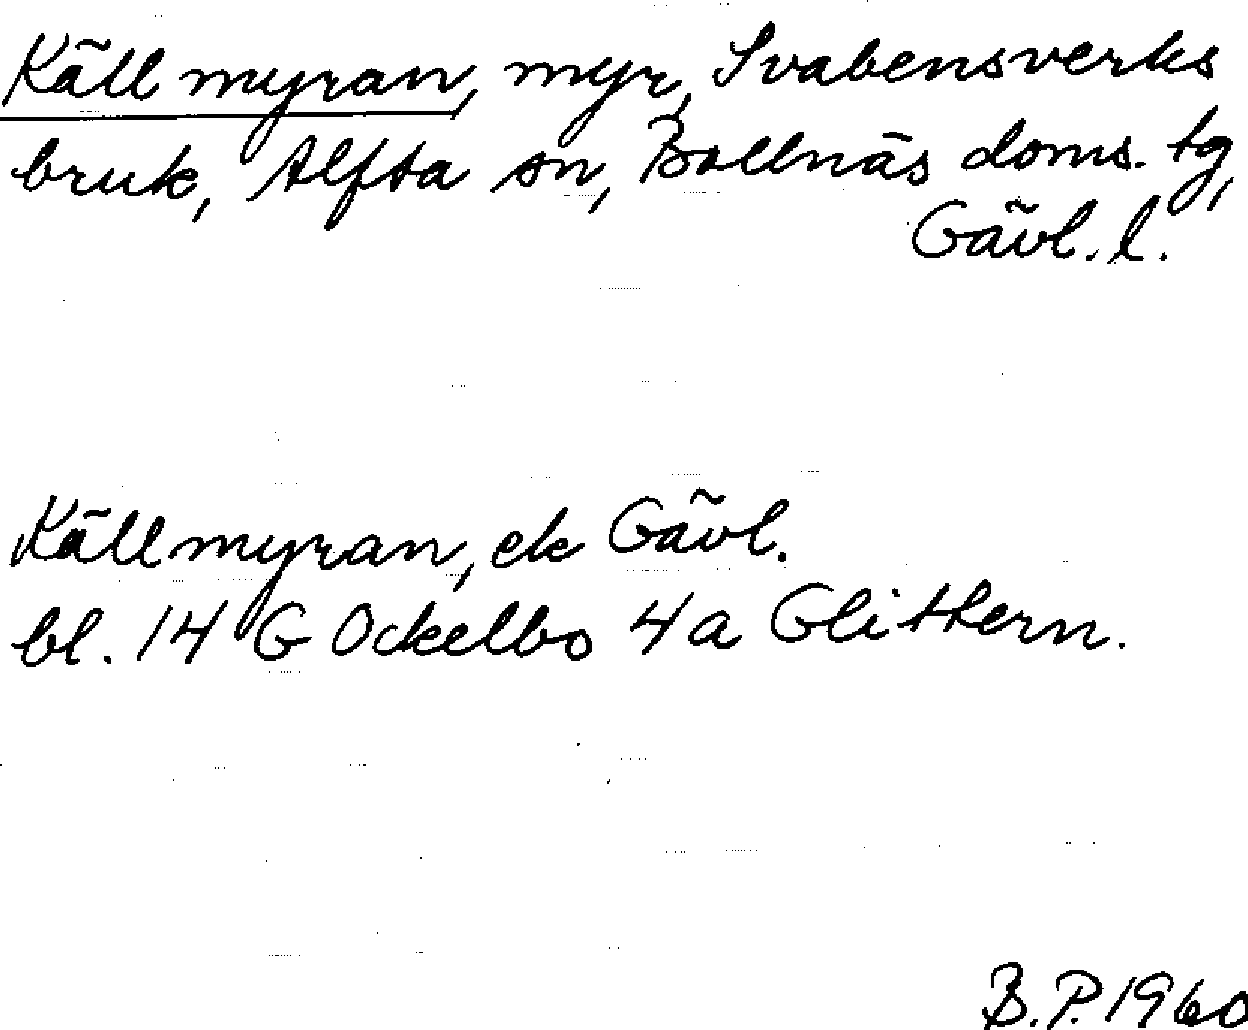 Källmyran, myr, Svabensverks
bruk, Alfta sn, Bollnäs doms. tg,
Gävl. l.
Källmyran, ek Gävl.
bl. 14 G Ockelbo 4a Glittern.
B.P. 1960